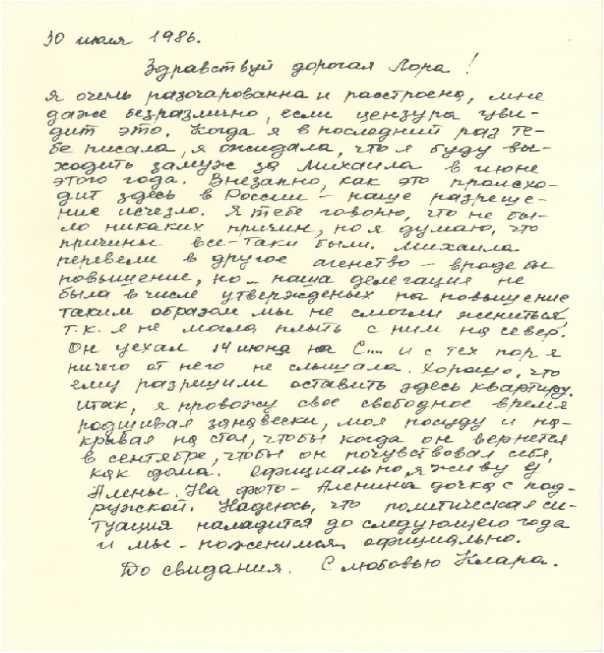 30 июля 1986.
Здравствуй дорогая Лора!
Я очень разочарованна и расстроена, мне
даже безразлично, если цензура уви-
дит это. Когда я в последний раз те-
бе писала, я ожидала, что я буду вы-
ходить замуж за Михаила в июне
этого года. Внезапно, как это происхо-
дит здесь в России – наше разреше-
ние исчезло. Я тебе говорю, что не бы-
ло никаких причин, но я думаю, что
причины все-таки были. Михаила
перевели в другое агенство – вроде бы
повышение, но – наша делегация не
была в числе утвержденых на повышение
таким образом мы не смогли жениться,
т.к. я не могла плыть с ним на север.
Он уехал 14 июня на С.... и с тех пор я
ничего от него не слышала. Хорошо, что
ему разрешили оставить здесь квартиру.
Итак, я провожу свое свободное время
подшивая занавески, моя посуду и на-
крывая на стол, чтобы когда он вернется
в сентябре, чтобы он почувствовал себя,
как дома. Официально, я живу у
Алены. На фото – Аленина дочка с под-
ружской. Надеюсь, что политическая си-
туация наладится до следующего года
и мы – поженимся официально.
До свидания. С любовью Клара.